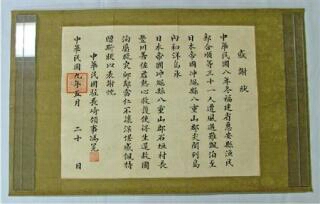 感謝狀
中華民國八年冬福建省惠安縣漁民
郭合順等三十一人遭風遇難飄泊至
日本帝國沖繩縣八重山郡尖閣列島
內和洋島承
日本帝國沖繩縣八重山郡石垣村長
豐川善佐君熱心救護使得生還故國
洵屬救災恤鄰當仁不讓深堪感佩特
贈斯狀以表謝忱
中華民國駐長崎領事馮冕
中華民國九年五月二十日